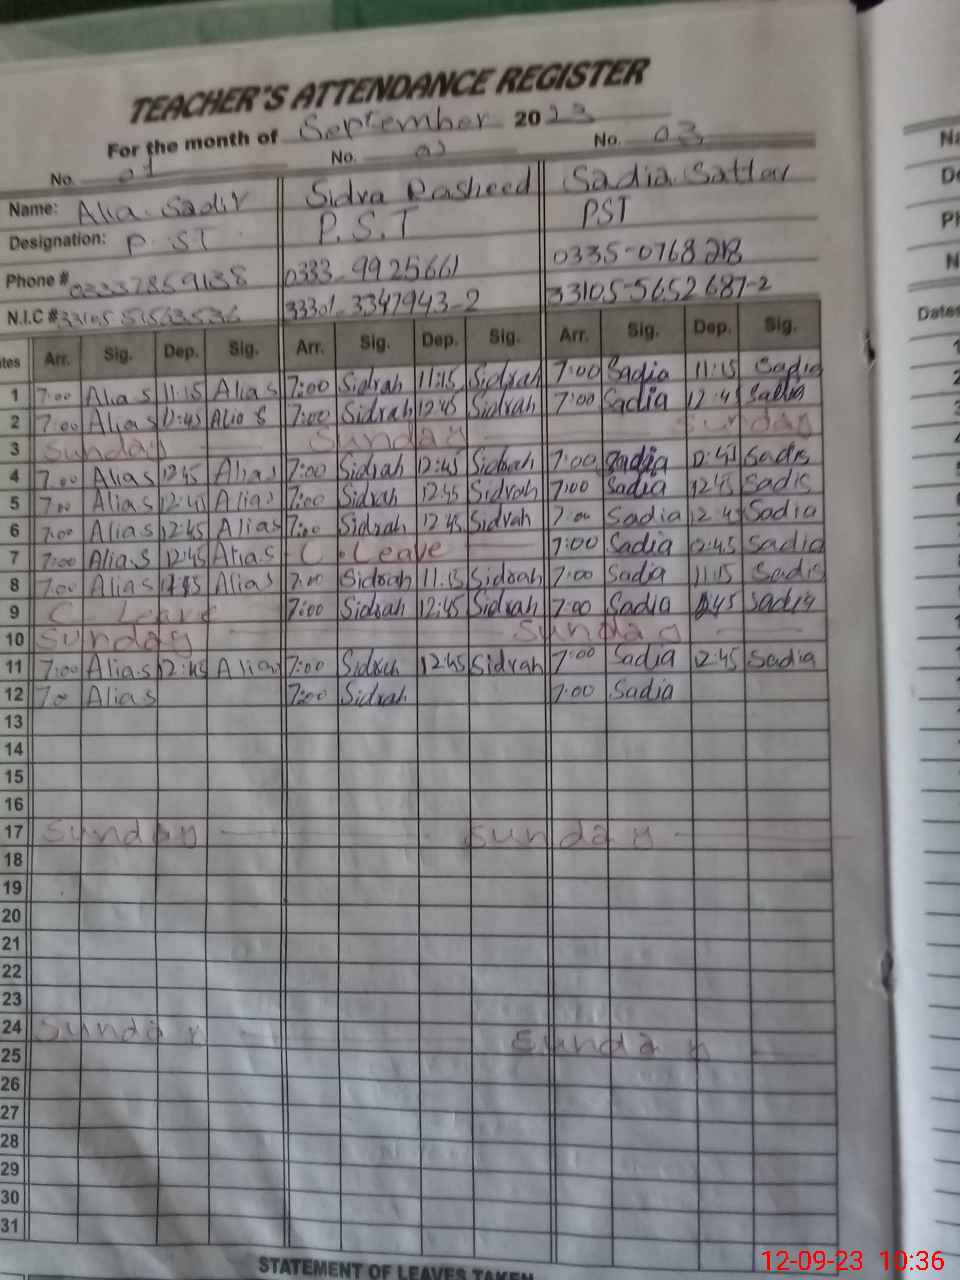 TEACHER'S ATTENDANCE REGISTER
For the month of September 2023
No. 01 No. No. 03
Name: Alia Sadir Sidra Rasheed Sadia Sattar
Designation: P. ST P.S.T PST
Phone # 03337859138 0333-9925661 0335-0768218
N.I.C # 33301-3347943-2 33105-5652687-2
Arr. Sig. Dep. Sig. Arr. Sig. Dep. Sig. Arr. Sig. Dep. Sig.
1 7:00 Alia S 11:15 Alia S 7:00 Sidrah 11:15 Sidrah 7:00 Sadia 11:15 Sadia
2 7:00 Alia S 12:45 Alia S 7:00 Sidrah 12:45 Sidrah 7:00 Sadia 12:45 Sadia
3 Sunday Sunday Sunday
4 7:00 Alia S 12:45 Alia S 7:00 Sidrah 12:45 Sidrah 7:00 Sadia 12:45 Sadia
5 7:00 Alia S 12:45 Alia S 7:00 Sidrah 12:45 Sidrah 7:00 Sadia 12:45 Sadia
6 7:00 Alia S 12:45 Alia S 7:00 Sidrah 12:45 Sidrah 7:00 Sadia 12:45 Sadia
7 7:00 Alia S 12:45 Alia S C. Leave 7:00 Sadia 12:45 Sadia
8 7:00 Alia S Alia S 7:00 Sidrah 11:15 Sidrah 7:00 Sadia 11:15 Sadia
9 C Leave 7:00 Sidrah 12:45 Sidrah 7:00 Sadia 12:45 Sadia
10 Sunday Sunday
11 7:00 Alia S 12:45 Alia S 7:00 Sidrah 12:45 Sidrah 7:00 Sadia 12:45 Sadia
12 7:00 Alia S 7:00 Sidrah 7:00 Sadia
13
14
15
16
17 Sunday Sunday
18
19
20
21
22
23
24 Sunday Sunday
25
26
27
28
29
30
31
STATEMENT OF LEAVES TAKEN
12-09-23 10:36